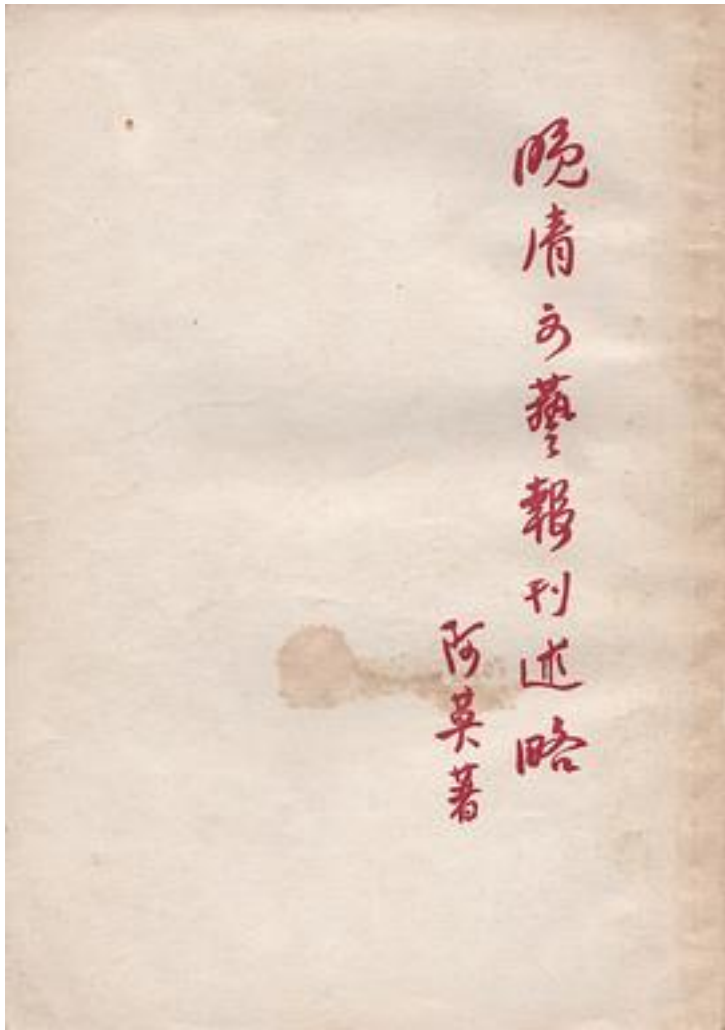 晚清文藝報刊述略
阿英著